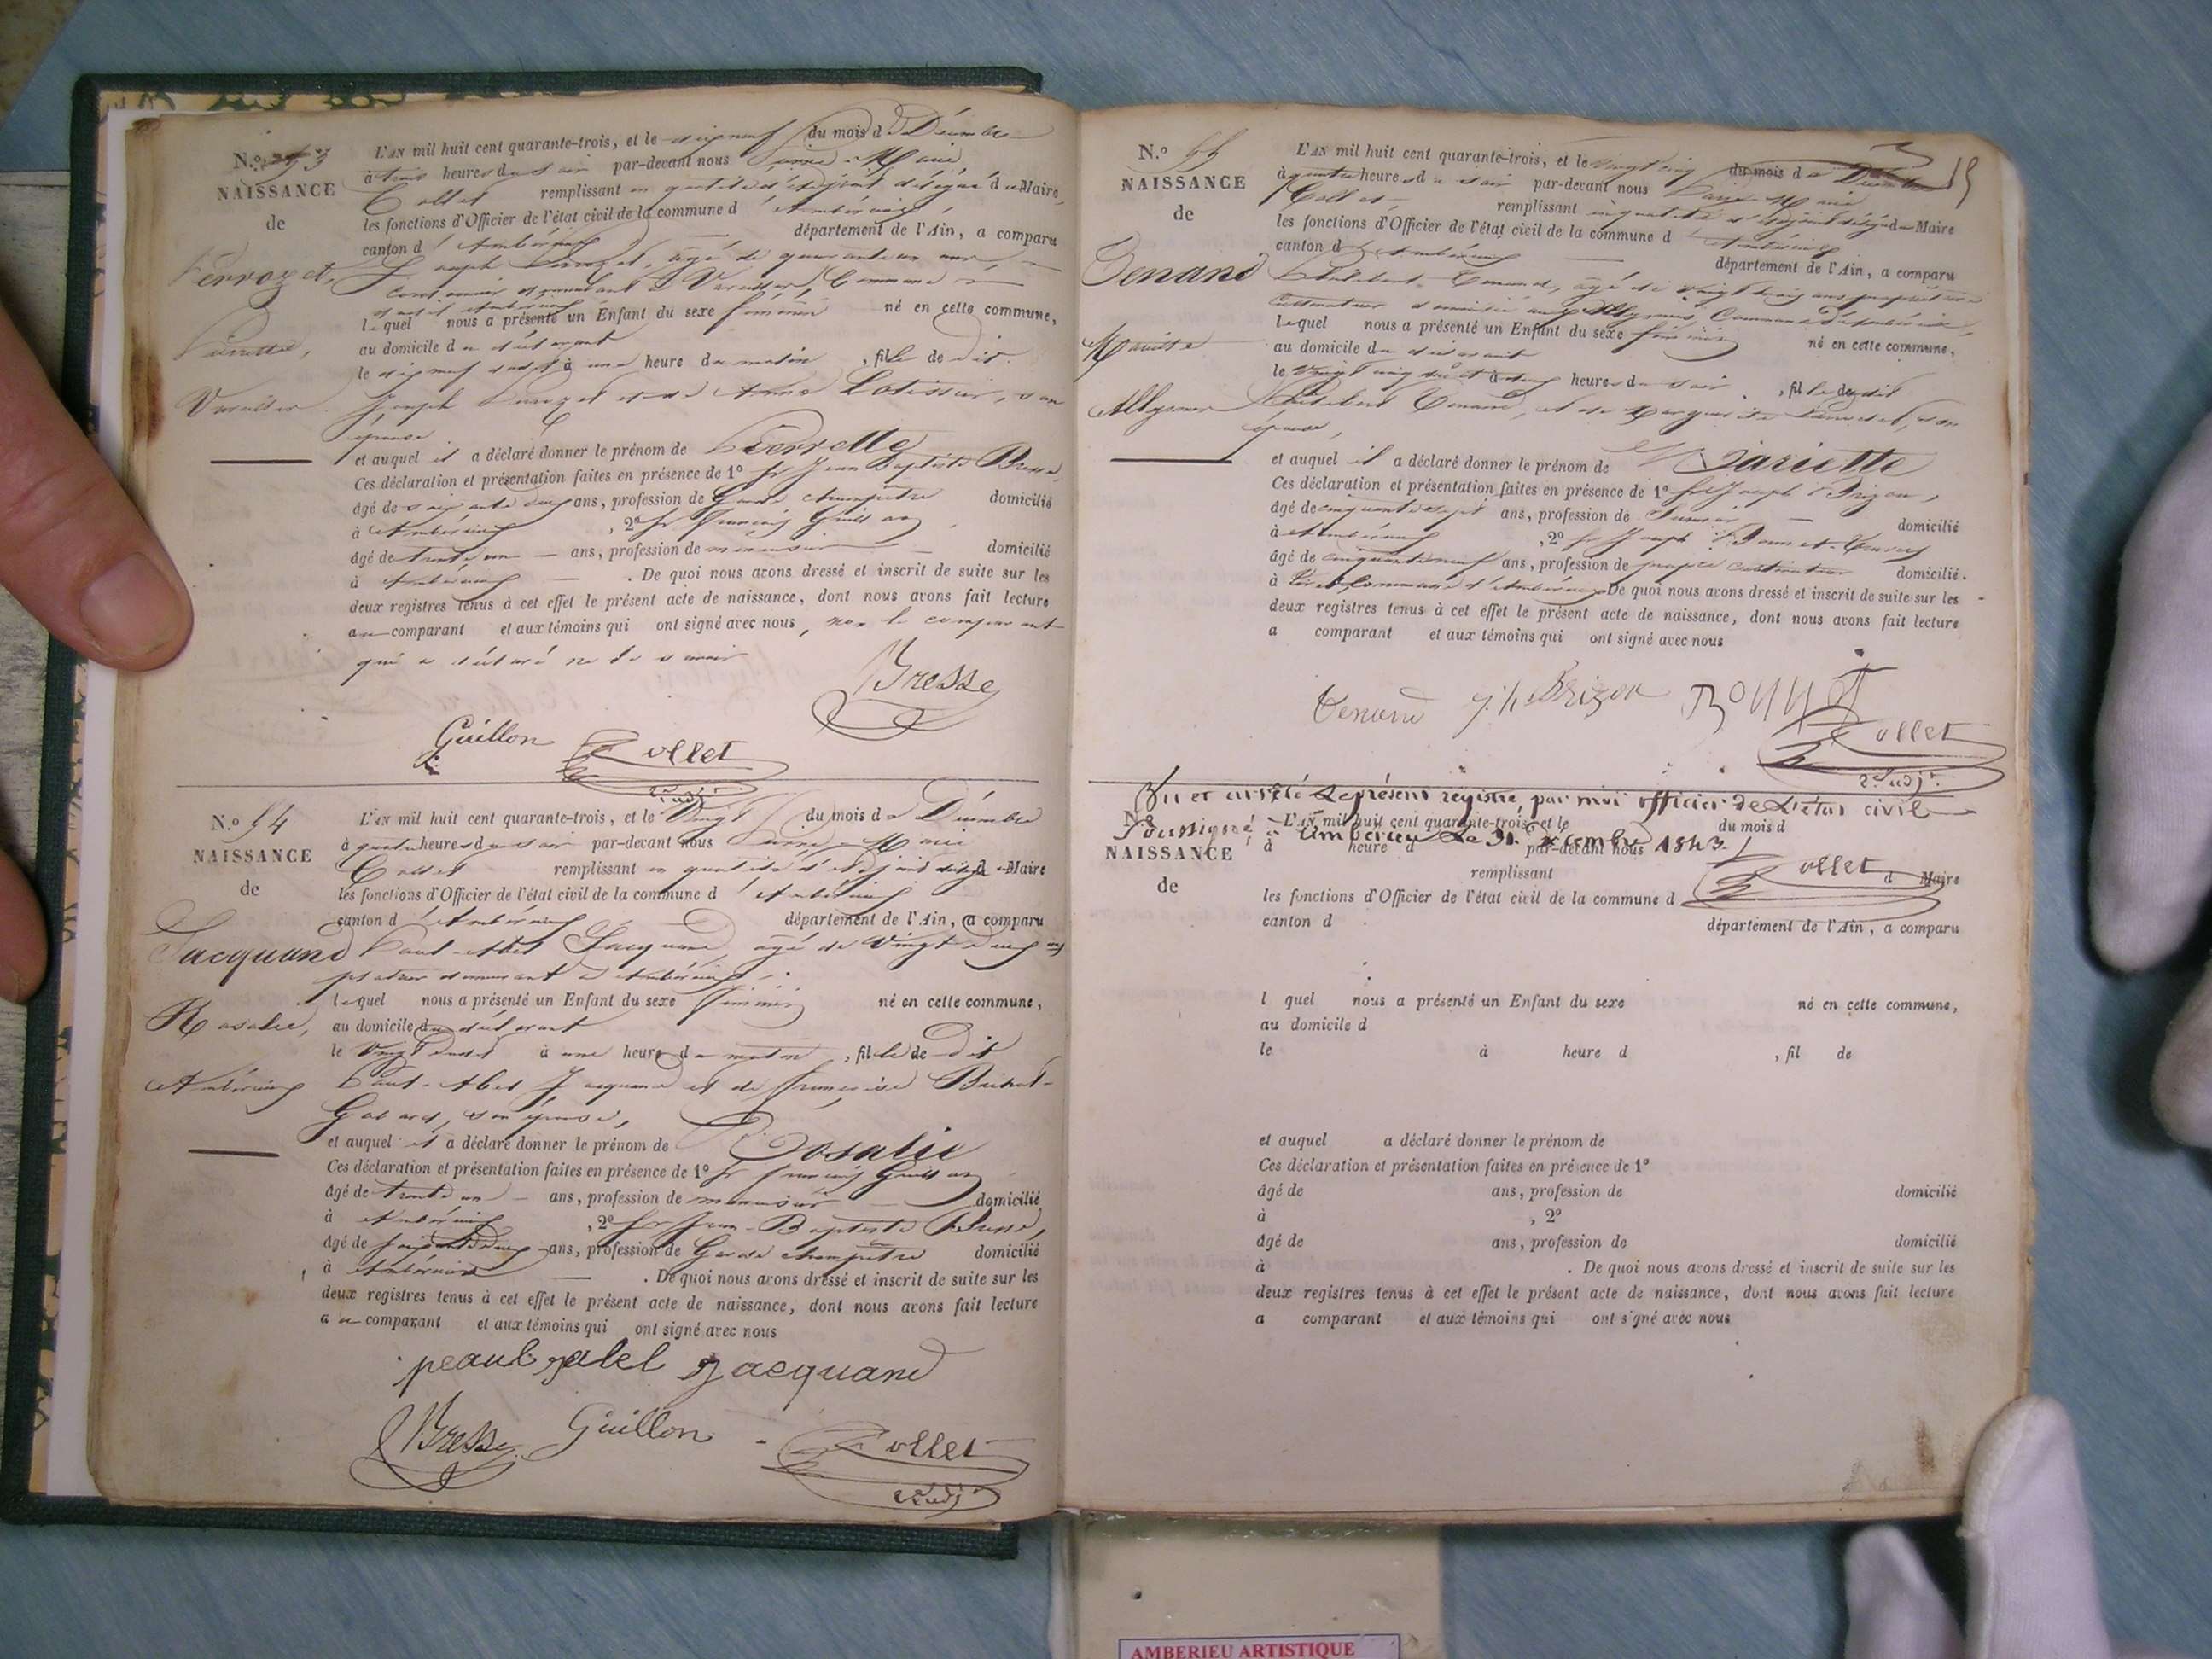 N.º 53
NAISSANCE
de
Perrozet,
Pierrette,
Vareilles
L'AN mil huit cent quarante-trois, et le dix neuf du mois de Décembre
à trois heures du soir par-devant nous Pierre-Marie
Collet remplissant en qualité d'adjoint délégué du Maire,
les fonctions d'Officier de l'état civil de la commune d'Ambérieux,
canton d'Ambérieux département de l'Ain, a comparu
Joseph Perrozet, âgé de quarante un ans,
cordonnier demeurant à Vareilles, Commune
lequel nous a présenté un Enfant du sexe féminin né en cette commune,
au domicile du déclarant
le dix neuf à une heure du matin, fille de dit
Joseph Perrozet et de Anne son
épouse
et auquel il a déclaré donner le prénom de Pierrette
Ces déclaration et présentation faites en présence de 1º Jean Baptiste Bresse,
âgé de soixante deux ans, profession de Garde champêtre domicilié
à Ambérieux, 2º François Guillon,
âgé de trente un ans, profession de menuisier domicilié
à Ambérieux. De quoi nous avons dressé et inscrit de suite sur les
deux registres tenus à cet effet le présent acte de naissance, dont nous avons fait lecture
au comparant et aux témoins qui ont signé avec nous, non le comparant
qui a déclaré ne le savoir
Bresse
Guillon Collet
2e adjt
N.º 54
NAISSANCE
de
Jacquand
Rosalie,
Ambérieux
L'AN mil huit cent quarante-trois, et le Vingt du mois de Décembre
à quatre heures du soir par-devant nous Pierre-Marie
Collet remplissant en qualité d'adjoint délégué du Maire
les fonctions d'Officier de l'état civil de la commune d'Ambérieux
canton d'Ambérieux département de l'Ain, a comparu
Paul-Abel Jacquand, âgé de Vingt deux ans
demeurant à Ambérieux,
lequel nous a présenté un Enfant du sexe féminin né en cette commune,
au domicile du déclarant
le Vingt à une heure du matin, fille de dit
Paul-Abel Jacquand et de Françoise
son épouse,
et auquel il a déclaré donner le prénom de Rosalie
Ces déclaration et présentation faites en présence de 1º François Guillon
âgé de trente un ans, profession de menuisier domicilié
à Ambérieux, 2º Jean-Baptiste Bresse,
âgé de soixante deux ans, profession de Garde champêtre domicilié
à Ambérieux. De quoi nous avons dressé et inscrit de suite sur les
deux registres tenus à cet effet le présent acte de naissance, dont nous avons fait lecture
au comparant et aux témoins qui ont signé avec nous
peaul abel Jacquand
Bresse Guillon Collet
2e adjt
N.º 55
NAISSANCE
de
Tenand
Mariette
Allymes
L'AN mil huit cent quarante-trois, et le Vingt cinq du mois de Décembre
à quatre heures du soir par-devant nous Pierre Marie
Collet remplissant en qualité d'adjoint délégué du Maire
les fonctions d'Officier de l'état civil de la commune d'Ambérieux
canton d'Ambérieux département de l'Ain, a comparu
Philibert Tenand, âgé de vingt trois ans propriétaire
cultivateur domicilié aux Allymes, Commune d'Ambérieux,
lequel nous a présenté un Enfant du sexe féminin né en cette commune,
au domicile du déclarant
le Vingt cinq du dit à deux heures du soir, fille du dit
Philibert Tenand, et de Marguerite son
épouse,
et auquel il a déclaré donner le prénom de Mariette
Ces déclaration et présentation faites en présence de 1º Joseph Brizon,
âgé de cinquante sept ans, profession de domicilié
à Ambérieux, 2º Joseph Bonnet
âgé de cinquante neuf ans, profession de cultivateur domicilié
à Commune d'Ambérieux De quoi nous avons dressé et inscrit de suite sur les
deux registres tenus à cet effet le présent acte de naissance, dont nous avons fait lecture
a comparant et aux témoins qui ont signé avec nous
Tenand j.h Brizon Bonnet
Collet
2e adjt
Vu et arrêté le présent registre, par moi officier de L'état civil
Soussigné, à Ambérieu Le 31 Xcembre 1843.
Collet
N.º
NAISSANCE
de
L'AN mil huit cent quarante-trois, et le du mois d
à heure d par-devant nous
remplissant d Maire
les fonctions d'Officier de l'état civil de la commune d
canton d département de l'Ain, a comparu
l quel nous a présenté un Enfant du sexe né en cette commune,
au domicile d
le à heure d , fil de
et auquel a déclaré donner le prénom de
Ces déclaration et présentation faites en présence de 1º
âgé de ans, profession de domicilié
à , 2º
âgé de ans, profession de domicilié
à . De quoi nous avons dressé et inscrit de suite sur les
deux registres tenus à cet effet le présent acte de naissance, dont nous avons fait lecture
a comparant et aux témoins qui ont signé avec nous
AMBERIEU ARTISTIQUE